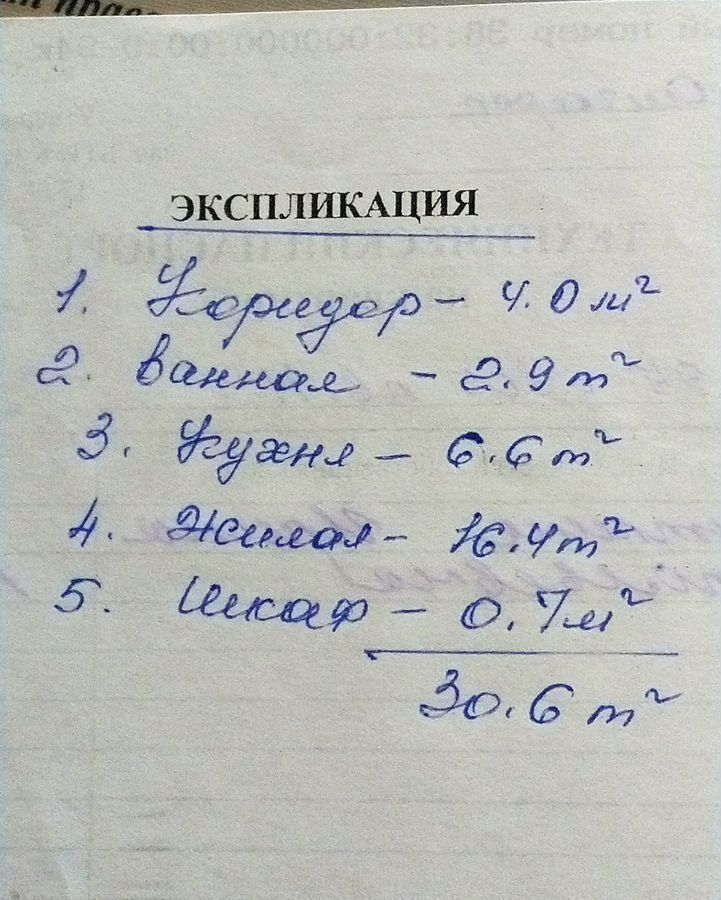 ЭКСПЛИКАЦИЯ
1. Коридор - 4.0 м²
2. ванная - 2.9 m²
3. Кухня - 6.6 m²
4. Жилая - 16.4 m²
5. Шкаф - 0.7 м²
30.6 m²